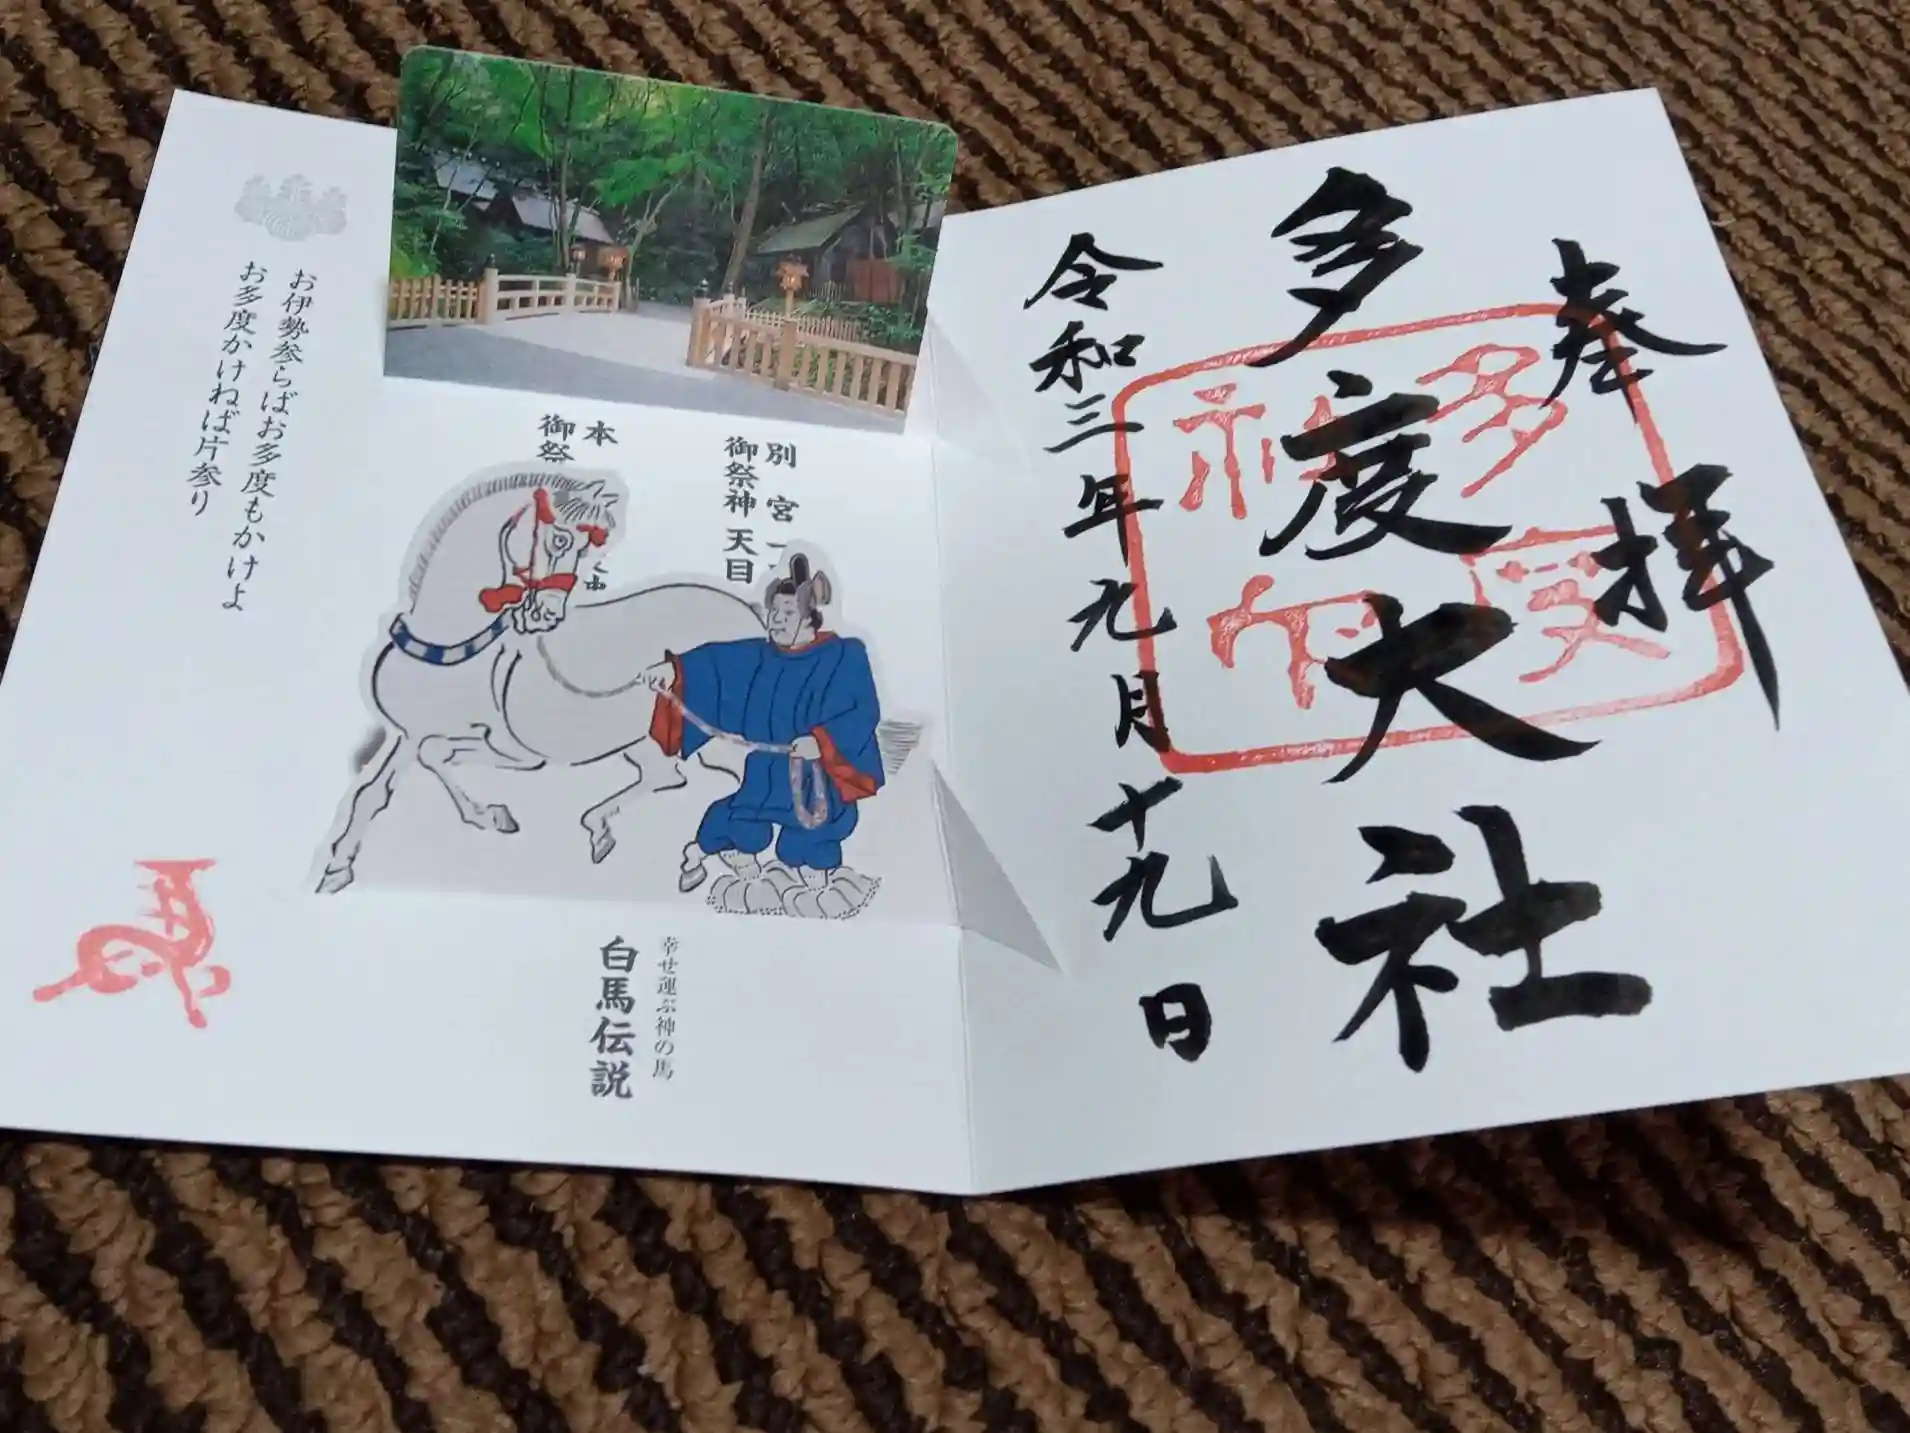 奉拝
多度大社
令和三年九月十九日
多度
神印
別宮一
御祭神 天目
本
御祭
お伊勢参らばお多度もかけよ
お多度かけねば片参り
幸せ運ぶ神の馬
白馬伝説
馬